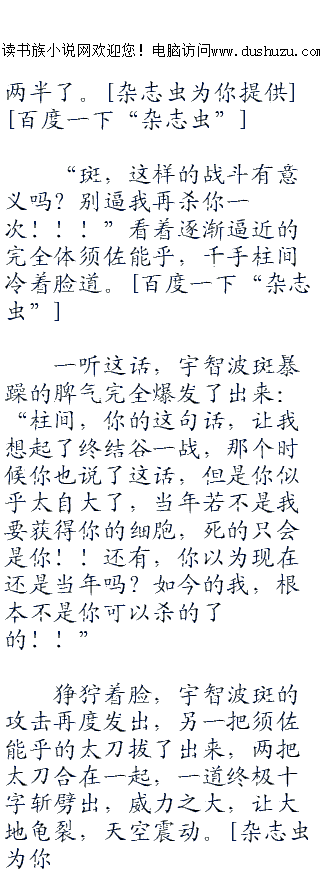 读书族小说网欢迎您！电脑访问www.dushuzu.com
两半了。[杂志虫为你提供]
[百度一下“杂志虫”]
“斑，这样的战斗有意
义吗？别逼我再杀你一
次！！！”看着逐渐逼近的
完全体须佐能乎，千手柱间
冷着脸道。[百度一下“杂志
虫”]
一听这话，宇智波斑暴
躁的脾气完全爆发了出来：
“柱间，你的这句话，让我
想起了终结谷一战，那个时
候你也说了这话，但是你似
乎太自大了，当年若不是我
要获得你的细胞，死的只会
是你！！还有，你以为现在
还是当年吗？如今的我，根
本不是你可以杀的了
的！！”
狰狞着脸，宇智波斑的
攻击再度发出，另一把须佐
能乎的太刀拔了出来，两把
太刀合在一起，一道终极十
字斩劈出，威力之大，让大
地龟裂，天空震动。[杂志虫
为你